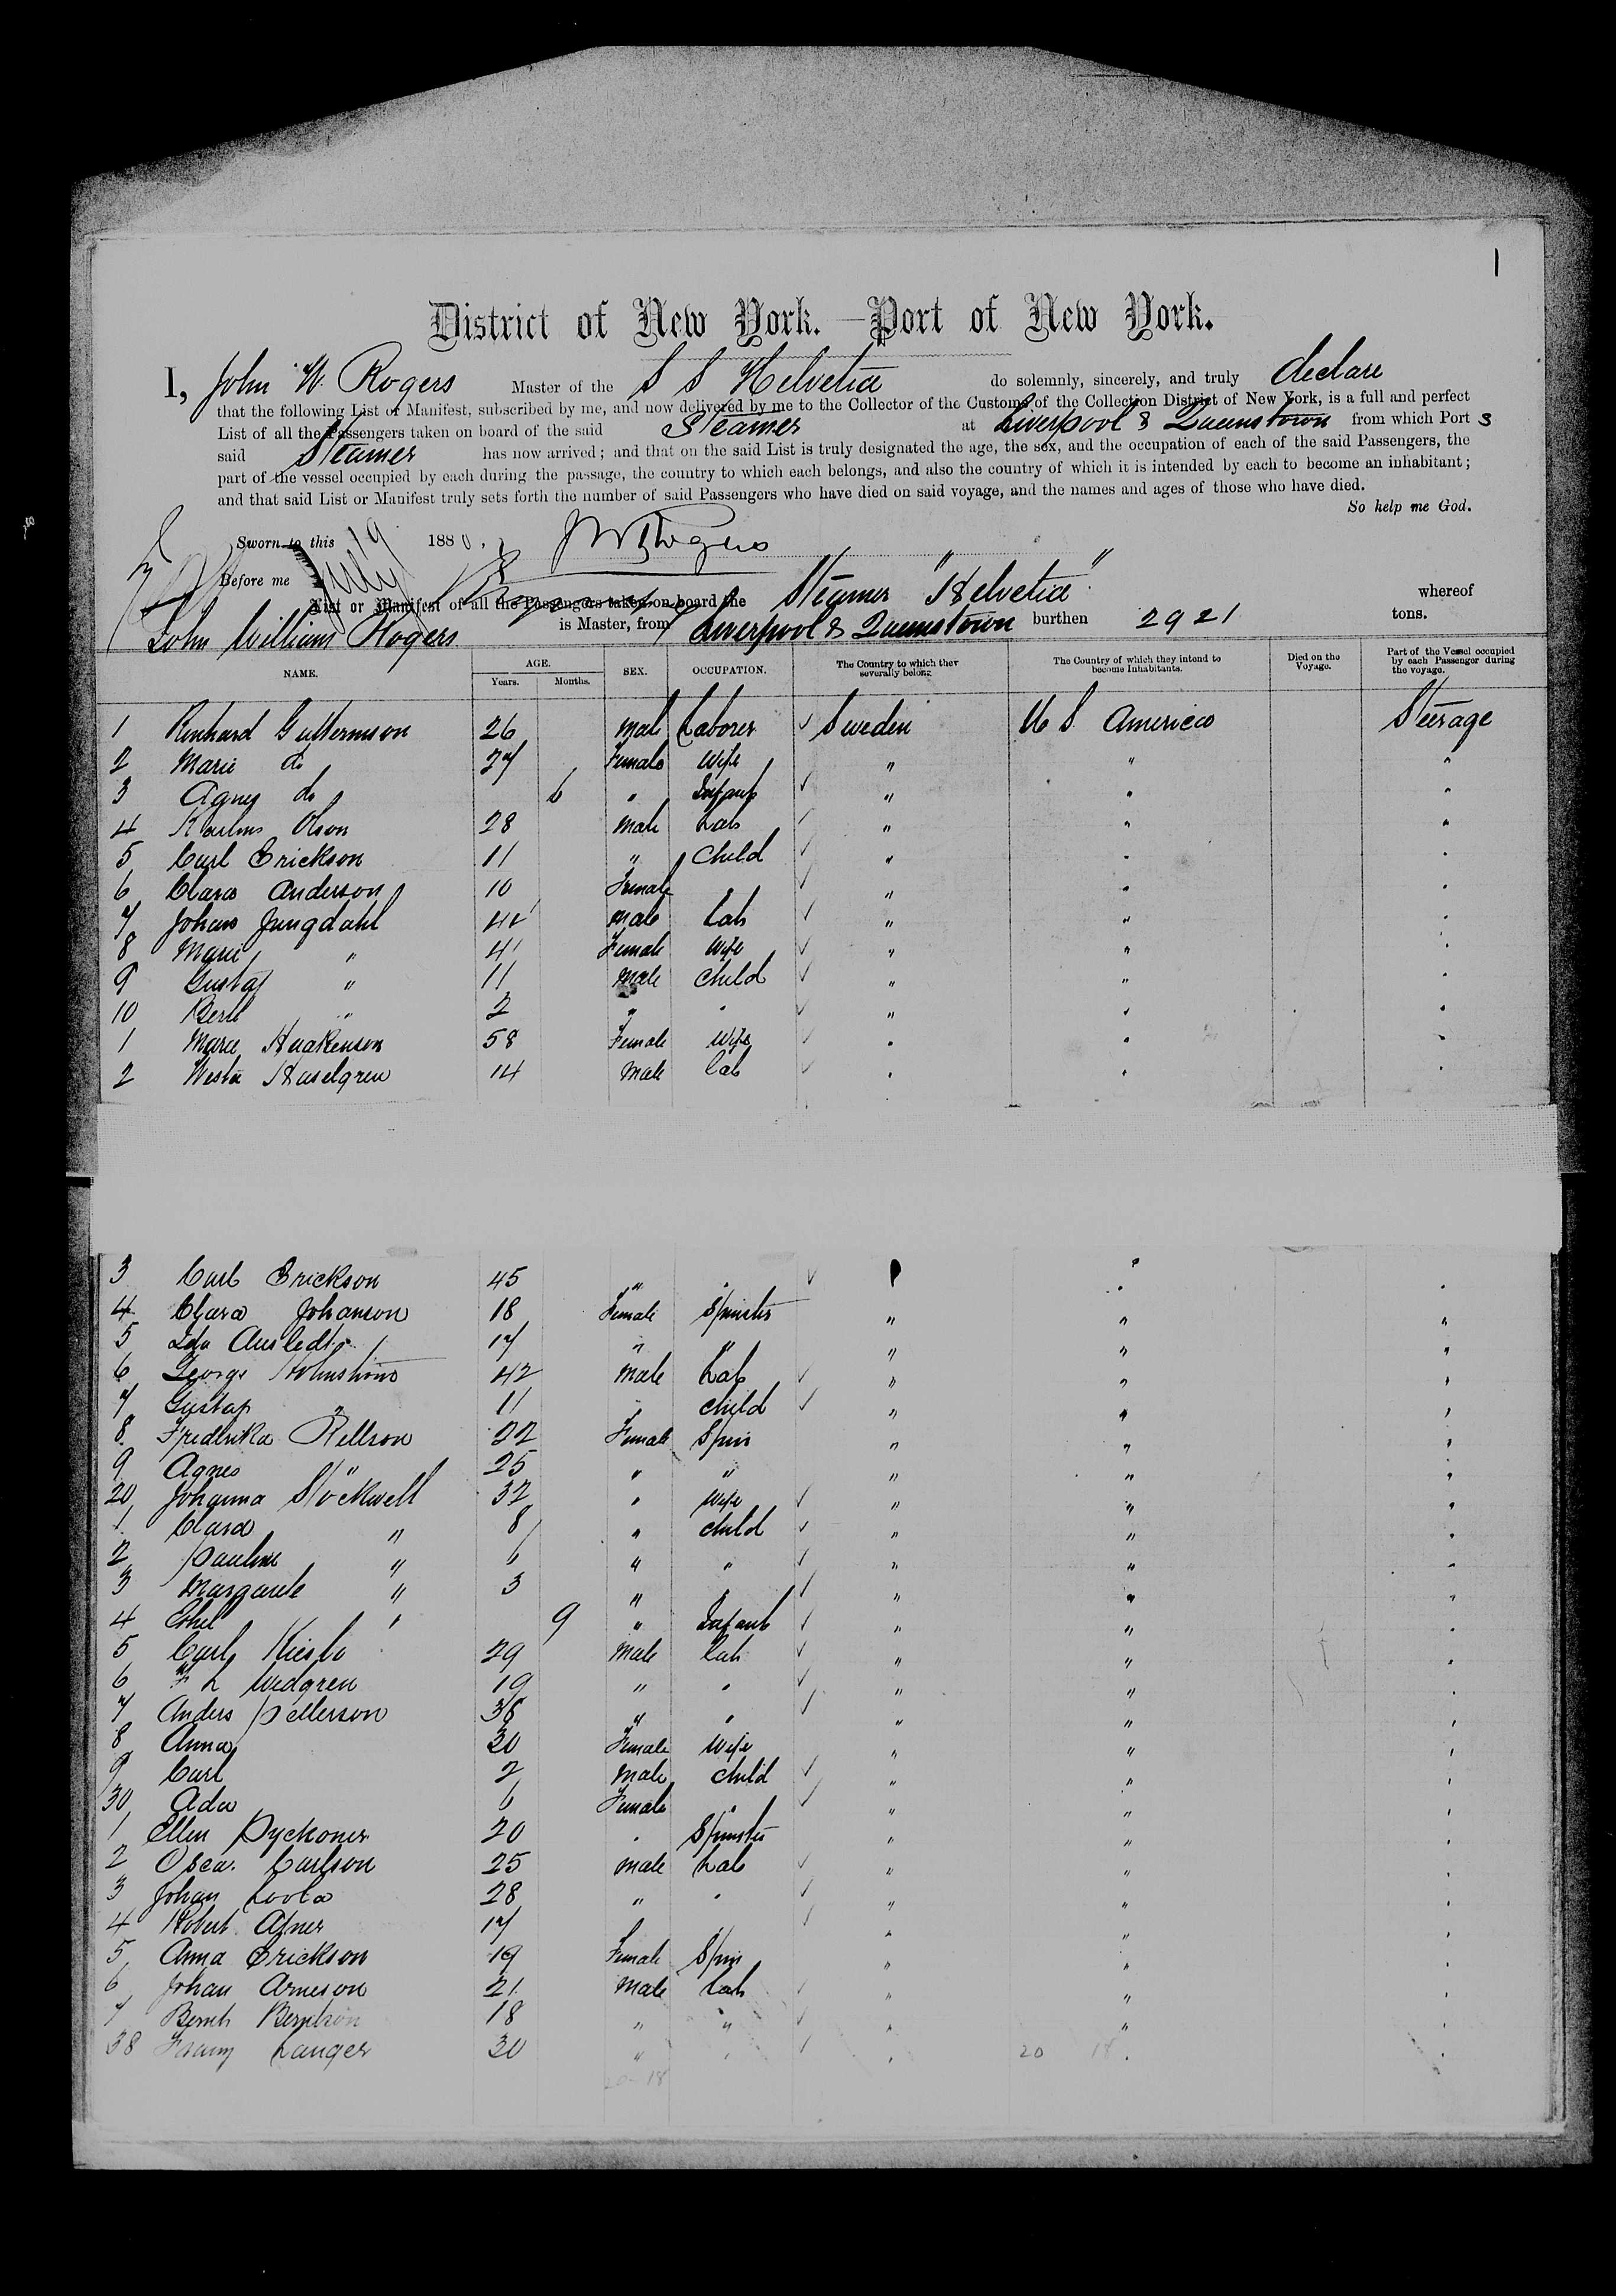 1
District of New York.—Port of New York.
I, John W. Rogers Master of the S S Helvetia do solemnly, sincerely, and truly declare
that the following List or Manifest, subscribed by me, and now delivered by me to the Collector of the Customs of the Collection District of New York, is a full and perfect
List of all the Passengers taken on board of the said Steamer at Liverpool & Queenstown from which Port s
said Steamer has now arrived; and that on the said List is truly designated the age, the sex, and the occupation of each of the said Passengers, the
part of the vessel occupied by each during the passage, the country to which each belongs, and also the country of which it is intended by each to become an inhabitant;
and that said List or Manifest truly sets forth the number of said Passengers who have died on said voyage, and the names and ages of those who have died.
So help me God.
Sworn to this July 19 1880, J W Rogers
Before me
List or Manifest of all the Passengers taken on board the Steamer "Helvetia" whereof
John William Rogers is Master, from Liverpool & Queenstown burthen 2921 tons.
NAME. AGE. Years. Months. SEX. OCCUPATION. The Country to which they severally belong. The Country of which they intend to become Inhabitants. Died on the Voyage. Part of the Vessel occupied by each Passenger during the voyage.
1 26 Male Laborer ✓ Sweden U S America Steerage
2 Marie do 27 Female Wife " " "
3 Agnes do 6 " Infant ✓ " " "
4 Olson 28 Male Lab ✓ " " "
5 Carl Erickson 11 " Child ✓ " " "
6 Clara Anderson 10 Female ✓ " " "
7 Johan Jungdahl 42 Male Lab ✓ " " "
8 Marie " 41 Female Wife ✓ " " "
9 Gustaf " 11 Male Child ✓ " " "
10 " 2 " " ✓ " " "
1 58 Female Wife ✓ " " "
2 Haselgren 14 Male Lab ✓ " " "
3 Carl Erickson 45 " " ✓ " " "
4 Clara Johanson 18 Female Spinster " " "
5 Ida 17 " " " " "
6 George 42 Male Lab ✓ " " "
7 Gustaf " 11 " Child ✓ " " "
8 Fredrika 22 Female Spin " " "
9 Agnes " 25 " " " " "
20 Johanna Stockwell 32 " Wife ✓ " " "
1 Clara " 8 " Child ✓ " " "
2 Pauline " 6 " " ✓ " " "
3 " 3 " ✓ " " "
4 " 9 " Infant ✓ " " "
5 Carl 29 Male Lab ✓ " " "
6 19 " " ✓ " " "
7 Anders Petterson 38 " " ✓ " " "
8 Anna 30 Female Wife " " "
9 Carl 2 Male Child ✓ " " "
30 Ada 6 Female " ✓ " " "
1 Ellen 20 " Spinster " " "
2 Carlson 25 Male Lab ✓ " " "
3 Johan 28 " " ✓ " " "
4 Robert 17 ✓ " " "
5 Anna Erickson 19 Female Spin " " "
6 Johan Arneson 21 Male Lab ✓ " " "
7 18 " " ✓ " " "
38 Langer 30 " " ✓ " 20 18 " "
20 18